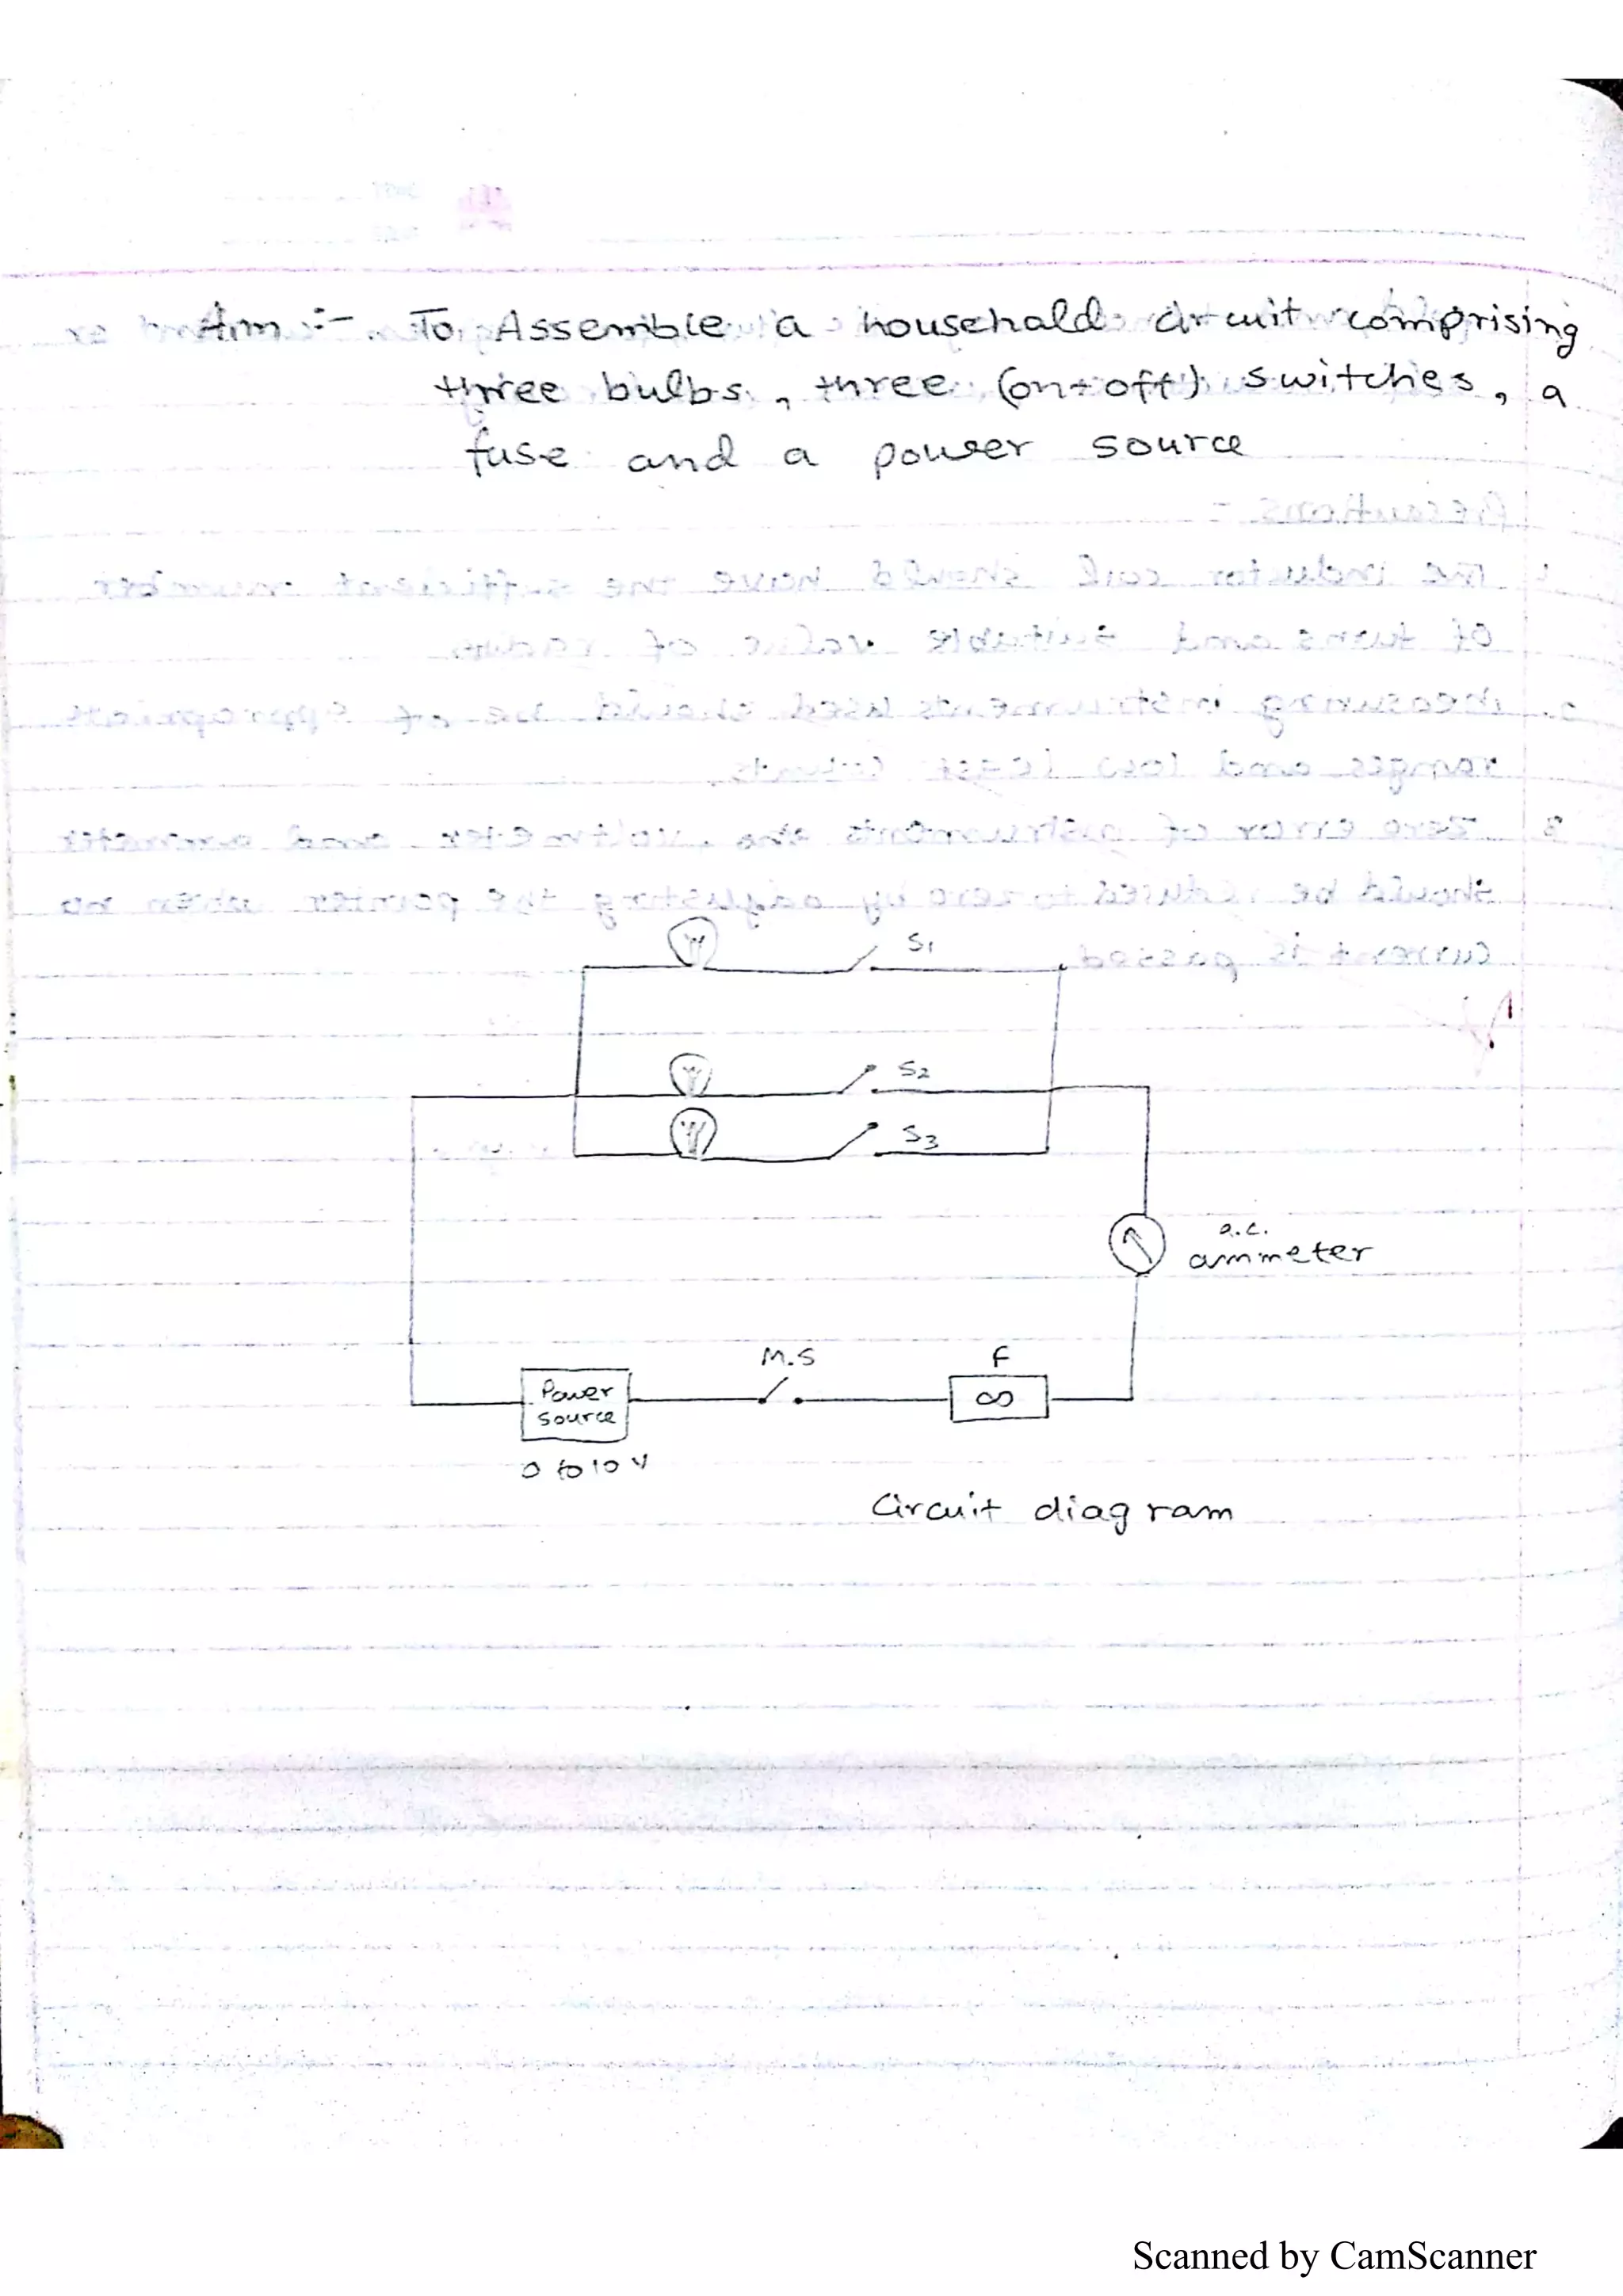 Aim :- To Assemble a househald circuit comprising
three bulbs, three (on + off) switches, a
fuse and a power source
S1
S2
S3
a.c.
ammeter
M.S
F
Power
source
0 to 10 V
Circuit diagram
Scanned by CamScanner